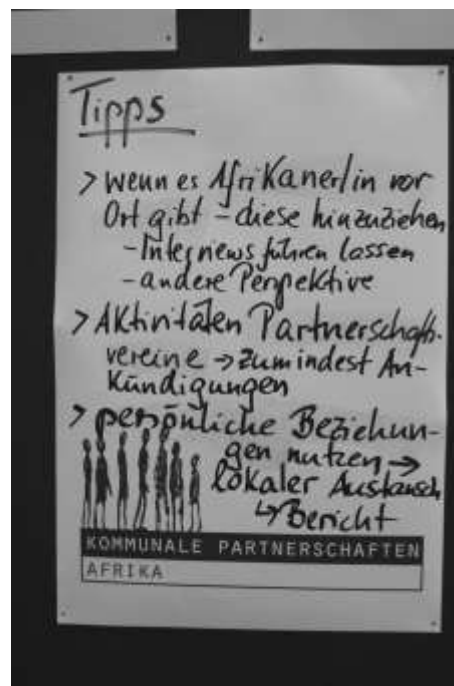 Tipps
> wenn es Afrikaner/in vor
Ort gibt – diese hinzuziehen
- Internews führen lassen
- andere Perspektive
> Aktivitäten Partnerschafts-
vereine → zumindest An-
kündigungen
> persönliche Beziehun-
gen nutzen →
lokaler Austausch
↳ Bericht
KOMMUNALE PARTNERSCHAFTEN
AFRIKA